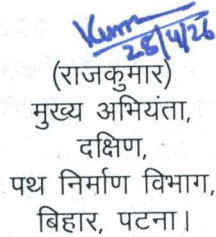 Kumar
28/4/26
(राजकुमार)
मुख्य अभियंता,
दक्षिण,
पथ निर्माण विभाग,
बिहार, पटना।